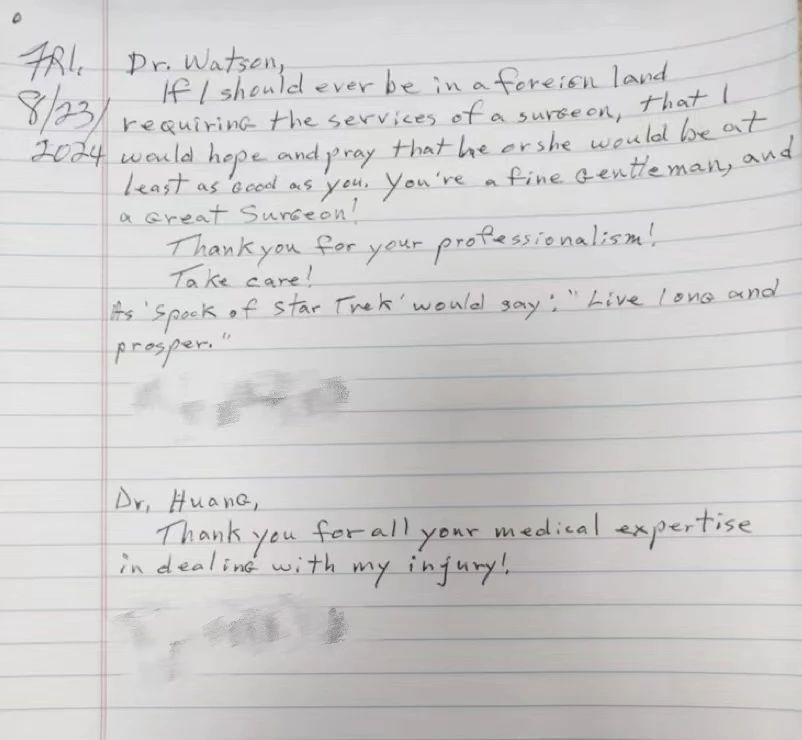 FRI. Dr. Watson,
If I should ever be in a foreign land
8/23/ requiring the services of a surgeon, that I
2024 would hope and pray that he or she would be at
least as good as you. You're a fine gentleman, and
a great Surgeon!
Thank you for your professionalism!
Take care!
As 'Spock of Star Trek' would say: "Live long and
prosper."
Dr. Huang,
Thank you for all your medical expertise
in dealing with my injury!